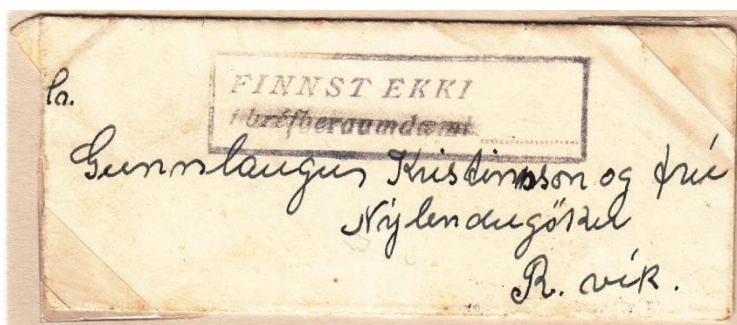 FINNST EKKI
í bréfberaumdæmi
hr.
Gunnlaugur Kristinsson og frú
Nýlendugötu
R. vík.